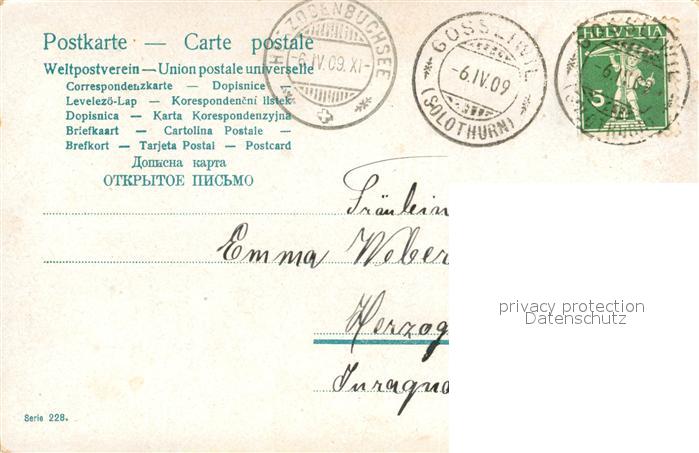 Postkarte — Carte postale
Weltpostverein — Union postale universelle
Correspondenzkarte — Dopisnice
Levelező-Lap — Korespondenční listek
Dopisnica — Karta Korespondenzyjna
Briefkaart — Cartolina Postale —
Brefkort — Tarjeta Postal — Postcard
Дописна карта
ОТКРЫТОЕ ПИСЬМО
HERZOGENBUCHSEE
-6.IV.09.XI-
GOSSLIWIL
-6.IV.09
(SOLOTHURN)
HELVETIA
5
Fräulein
Emma Weber
Herzog
Juraqua
privacy protection
Datenschutz
Serie 228.